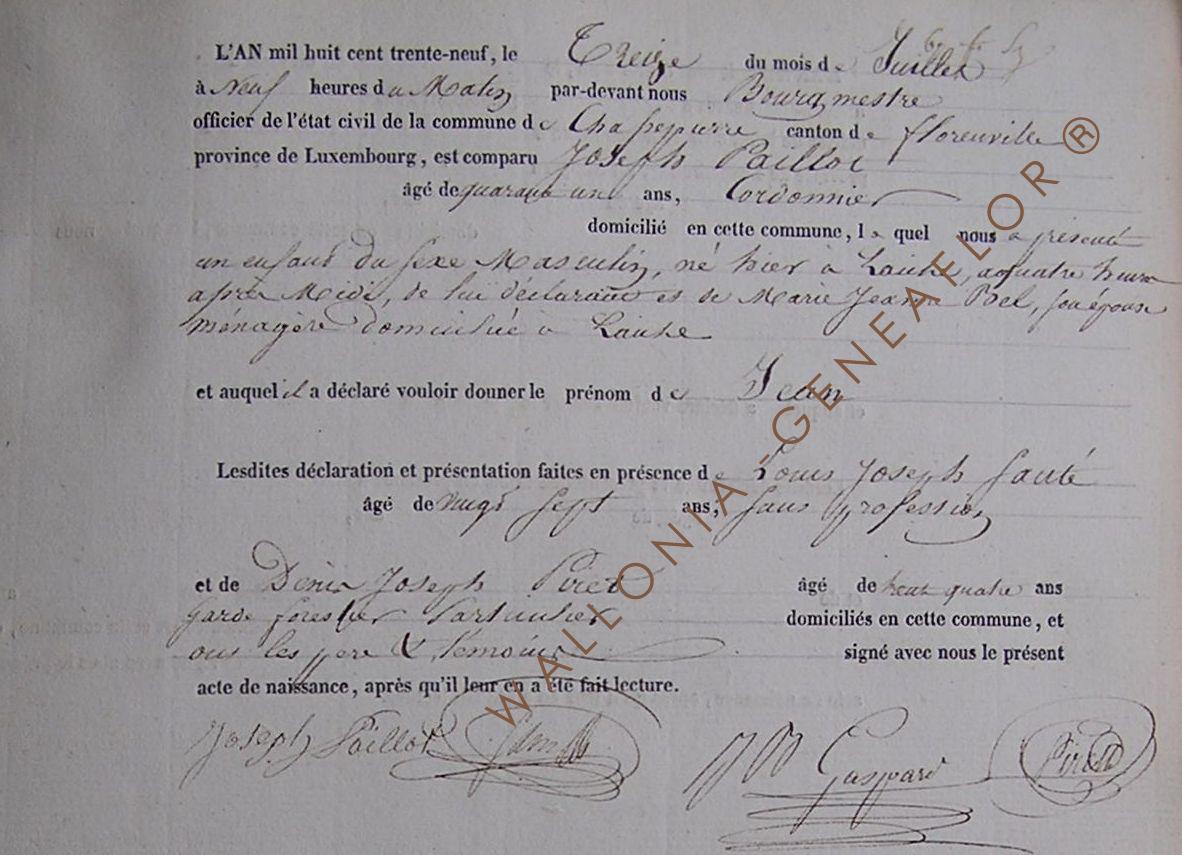 L'AN mil huit cent trente-neuf, le Treize du mois de Juillet
à Neuf heures du Matin par-devant nous Bourgmestre
officier de l'état civil de la commune de Chassepierre canton de florenville
province de Luxembourg, est comparu Joseph Paillot
âgé de quarante un ans, Cordonnier
domicilié en cette commune, le quel nous a présenté
un enfant du sexe Masculin, né hier à Laiche, a quatre heures
après Midi, de lui déclarant et de Marie Jeanne Poel, son épouse
ménagère domiciliée à Laiche
et auquel il a déclaré vouloir donner le prénom de Jean
Lesdites déclaration et présentation faites en présence de Louis Joseph
âgé de vingt sept ans, sans profession
et de Denis Joseph Piret âgé de trente quatre ans
garde forestier Particulier domiciliés en cette commune, et
ont les pere & témoins signé avec nous le présent
acte de naissance, après qu'il leur en a été fait lecture.
Joseph Paillot Gaspard Piret
WALLONIA - GENEAFLOR ®